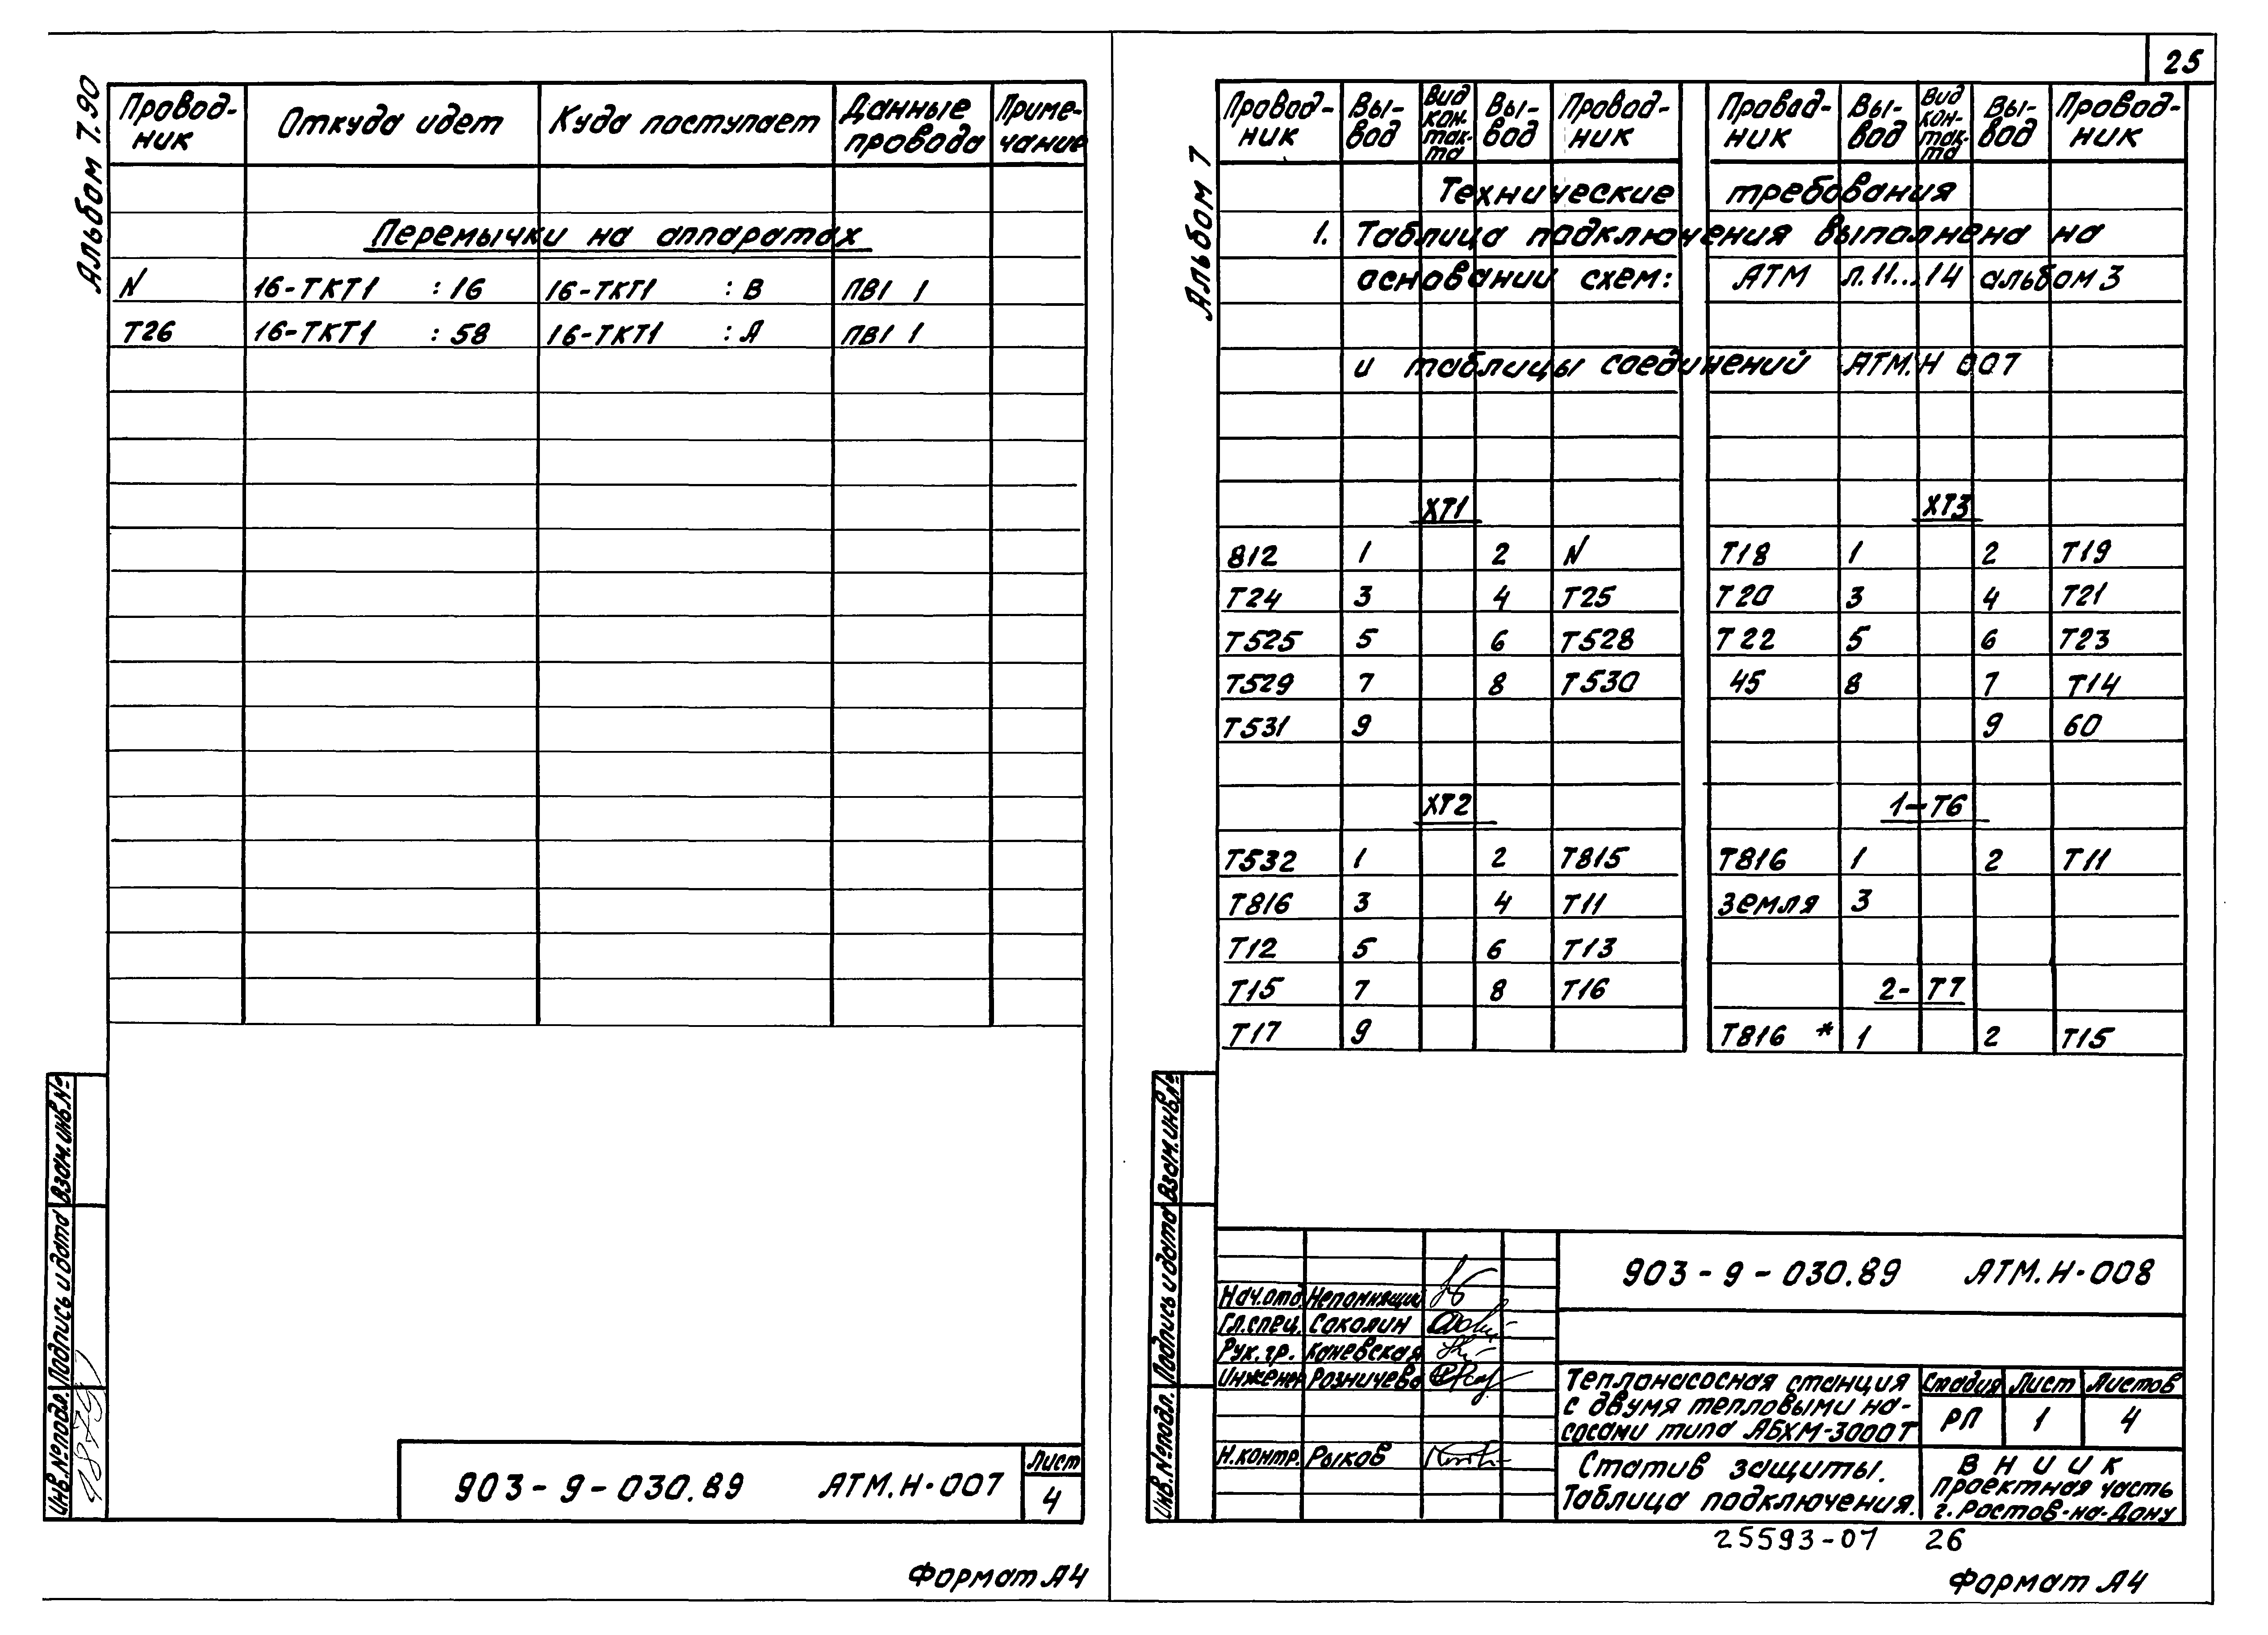 Альбом 7.90
Провод-ник Откуда идет Куда поступает Данные провода Приме-чание
Перемычки на аппаратах
N 16-ТКТ1 :16 16-ТКТ1 :В ПВ1 1
Т26 16-ТКТ1 :58 16-ТКТ1 :А ПВ1 1
Взам.инв.№
Подпись и дата
Инв.№подл.
903-9-030.89 АТМ.Н-007
Лист
4
Формат А4
25
Альбом 7
Провод-ник Вы-вод Вид кон-так-та Вы-вод Провод-ник Провод-ник Вы-вод Вид кон-так-та Вы-вод Провод-ник
Технические требования
1. Таблица подключения выполнена на
основании схем: АТМ л.11...14 альбом 3
и таблицы соединений АТМ.Н 007
ХТ1 ХТ3
812 1 2 N Т18 1 2 Т19
Т24 3 4 Т25 Т20 3 4 Т21
Т525 5 6 Т528 Т22 5 6 Т23
Т529 7 8 Т530 45 8 7 Т14
Т531 9 9 60
ХТ2 1-Т6
Т532 1 2 Т815 Т816 1 2 Т11
Т816 3 4 Т11 Земля 3
Т12 5 6 Т13
Т15 7 8 Т16 2-Т7
Т17 9 Т816 * 1 2 Т15
Взам.инв.№
Подпись и дата
Инв.№подл.
903-9-030.89 АТМ.Н-008
Нач.отд. Непомнящий
Гл.спец. Соколин
Рук.гр. Каневская
Инженер Розничева
Н.контр. Рыков
Теплонасосная станция
с двумя тепловыми на-
сосами типа АБХМ-3000Т
Стадия Лист Листов
РП 1 4
Статив защиты.
Таблица подключения.
ВНИИК
Проектная часть
г.Ростов-на-Дону
25593-07 26
Формат А4